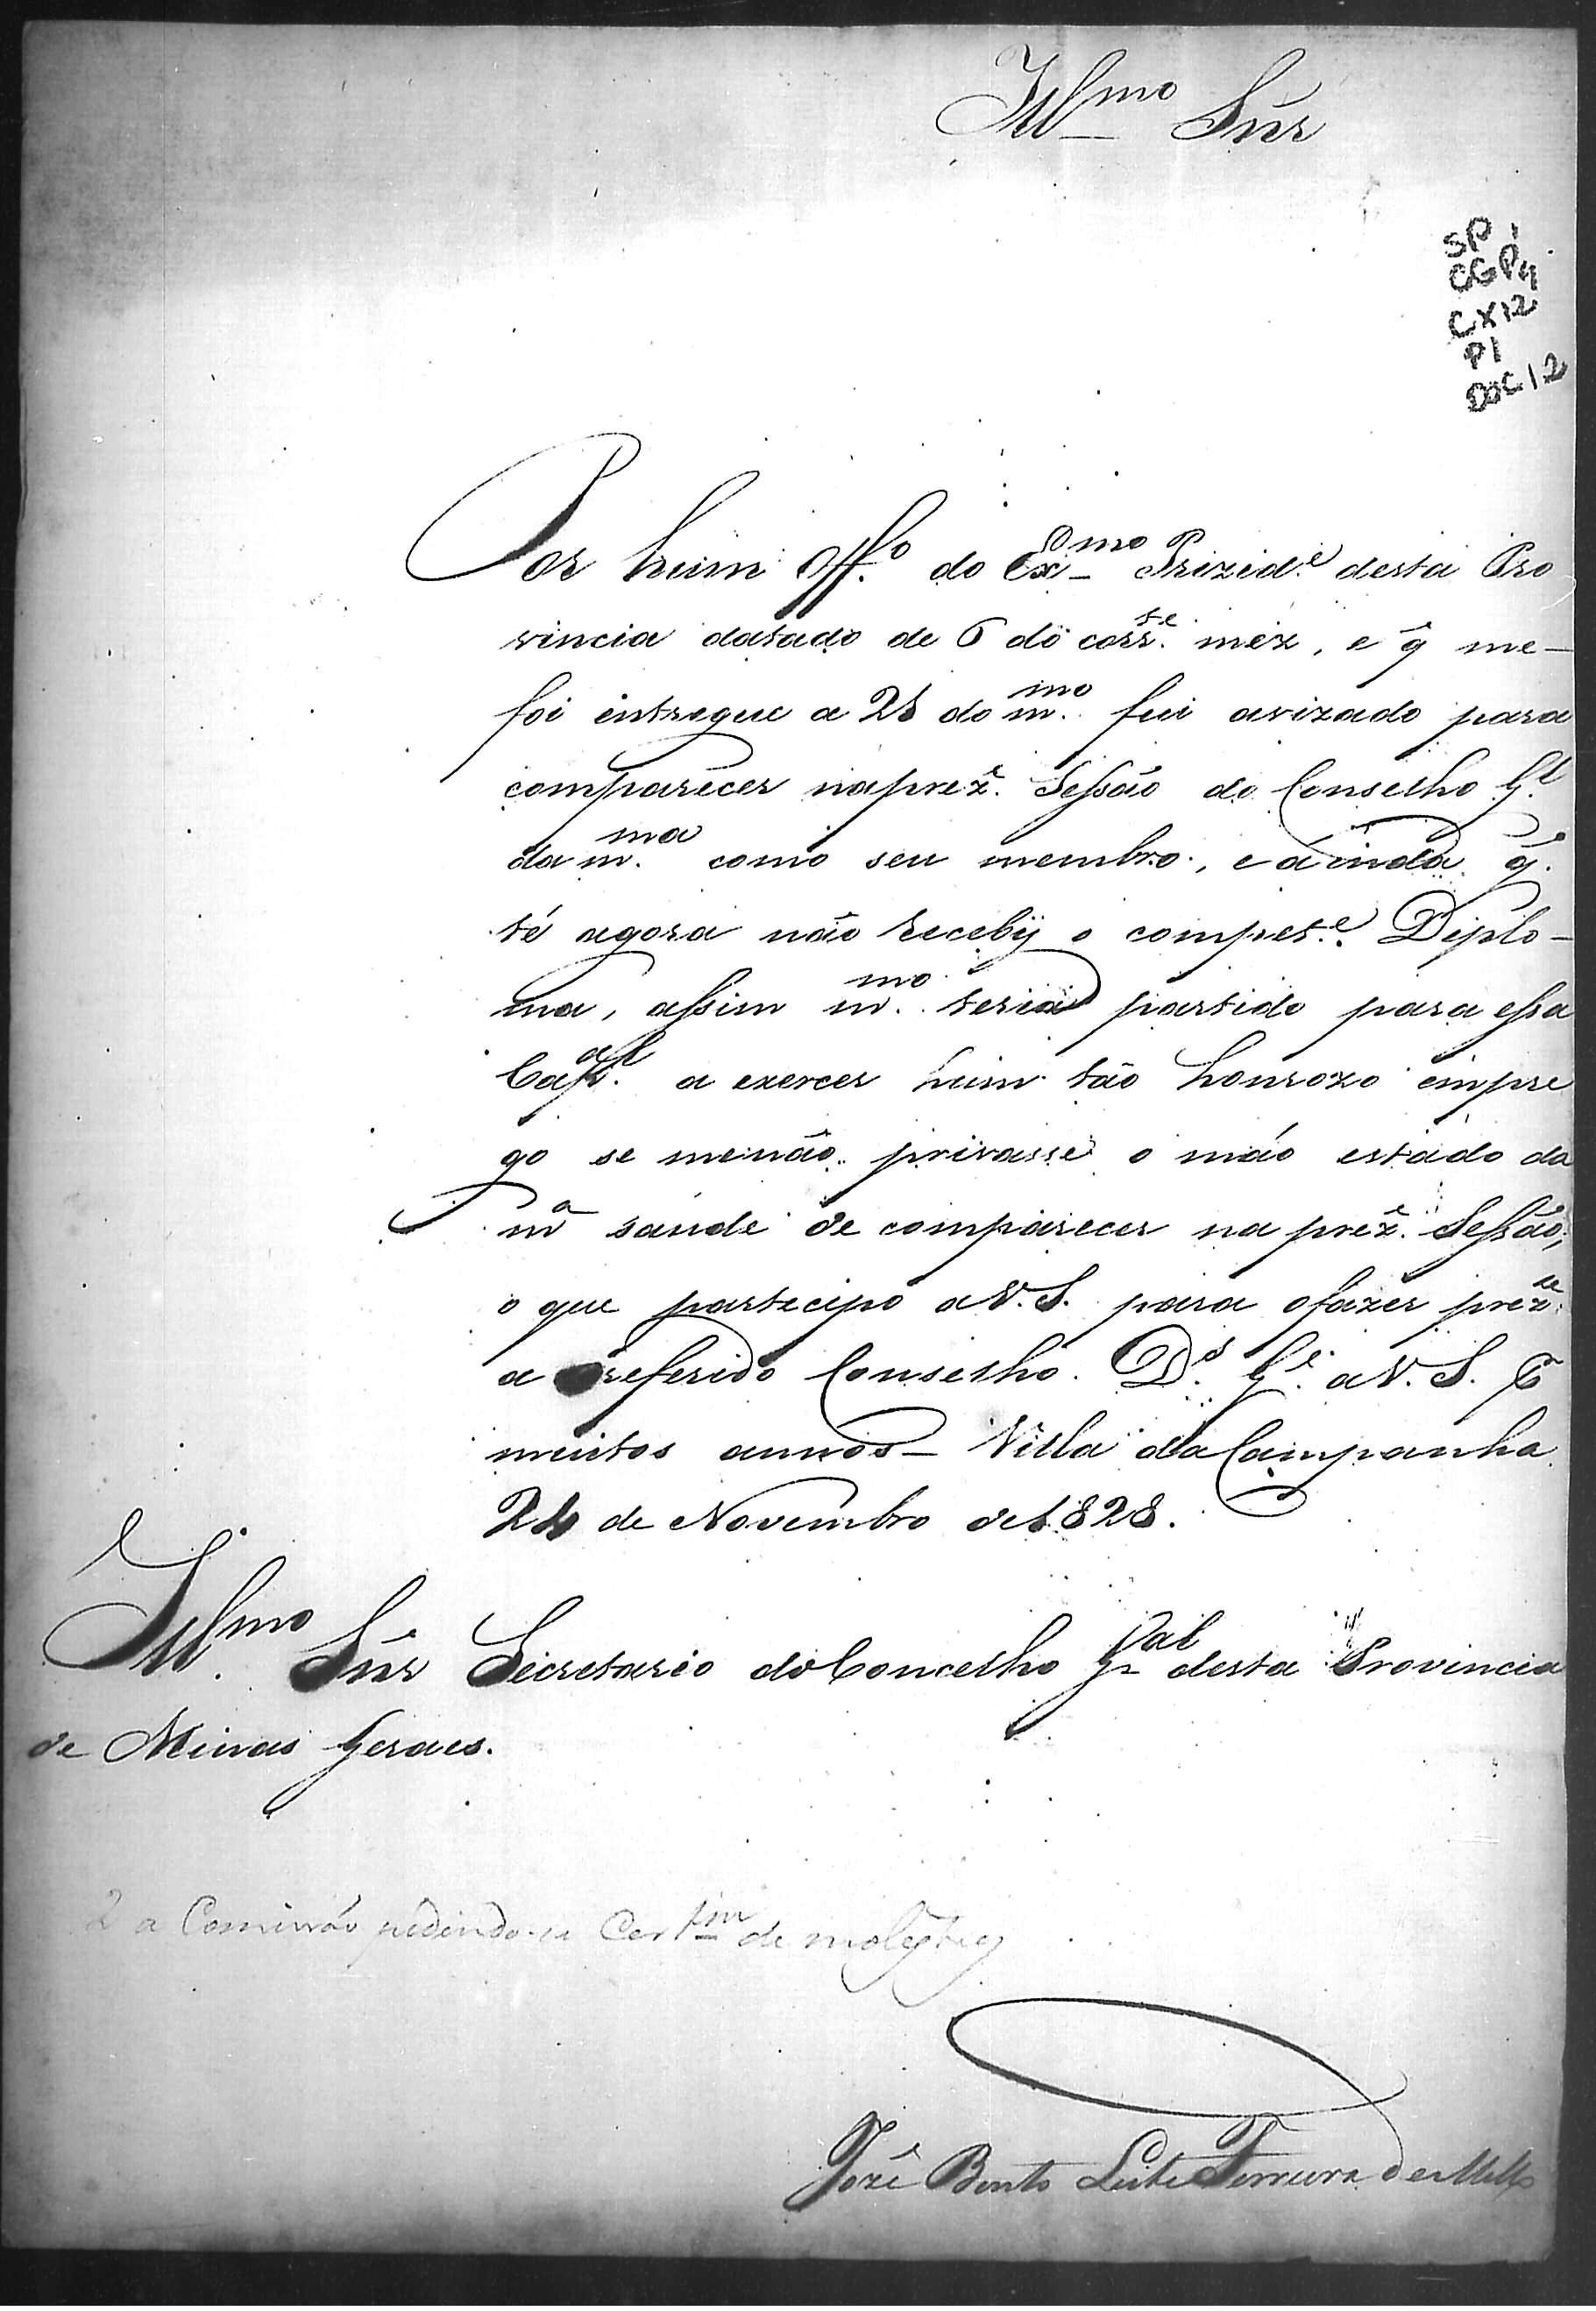 Ill^mo Snr
SP 1
CGP4
CX12
P1
DOC12
Por hum Off.º do Ex^mo Prizid.e desta Pro
vincia datado de 6 do corr.te mez, e q̃ me-
foi entregue a 21 do m.mo fui avizado para
comparecer naprez.e Seſsão do Conselho G.l
da m.ma como seu membro, e ainda q̃.
té agora não recebÿ o compet.e Diplo-
ma, aſsim m.mo teria partido para eſsa
Cap.al a exercer hum tão honrozo empre
go se menão privasse o máo estado da
m.a saude de comparecer na prez.e Seſsão,
o que partecipo aV.S. para ofazer prez.te
a referido Conselho. D.s G.e aV.S. P
muitos annos- Villa da Campanha
24 de Novembro de1828.
Ill^mo Snr Secretario do Concelho G.al desta Provincia
de Minas Geraes.
2 a Comissão pedindo-se Cert^m de molestia
Jozé Bento Leite Ferreira de Mello